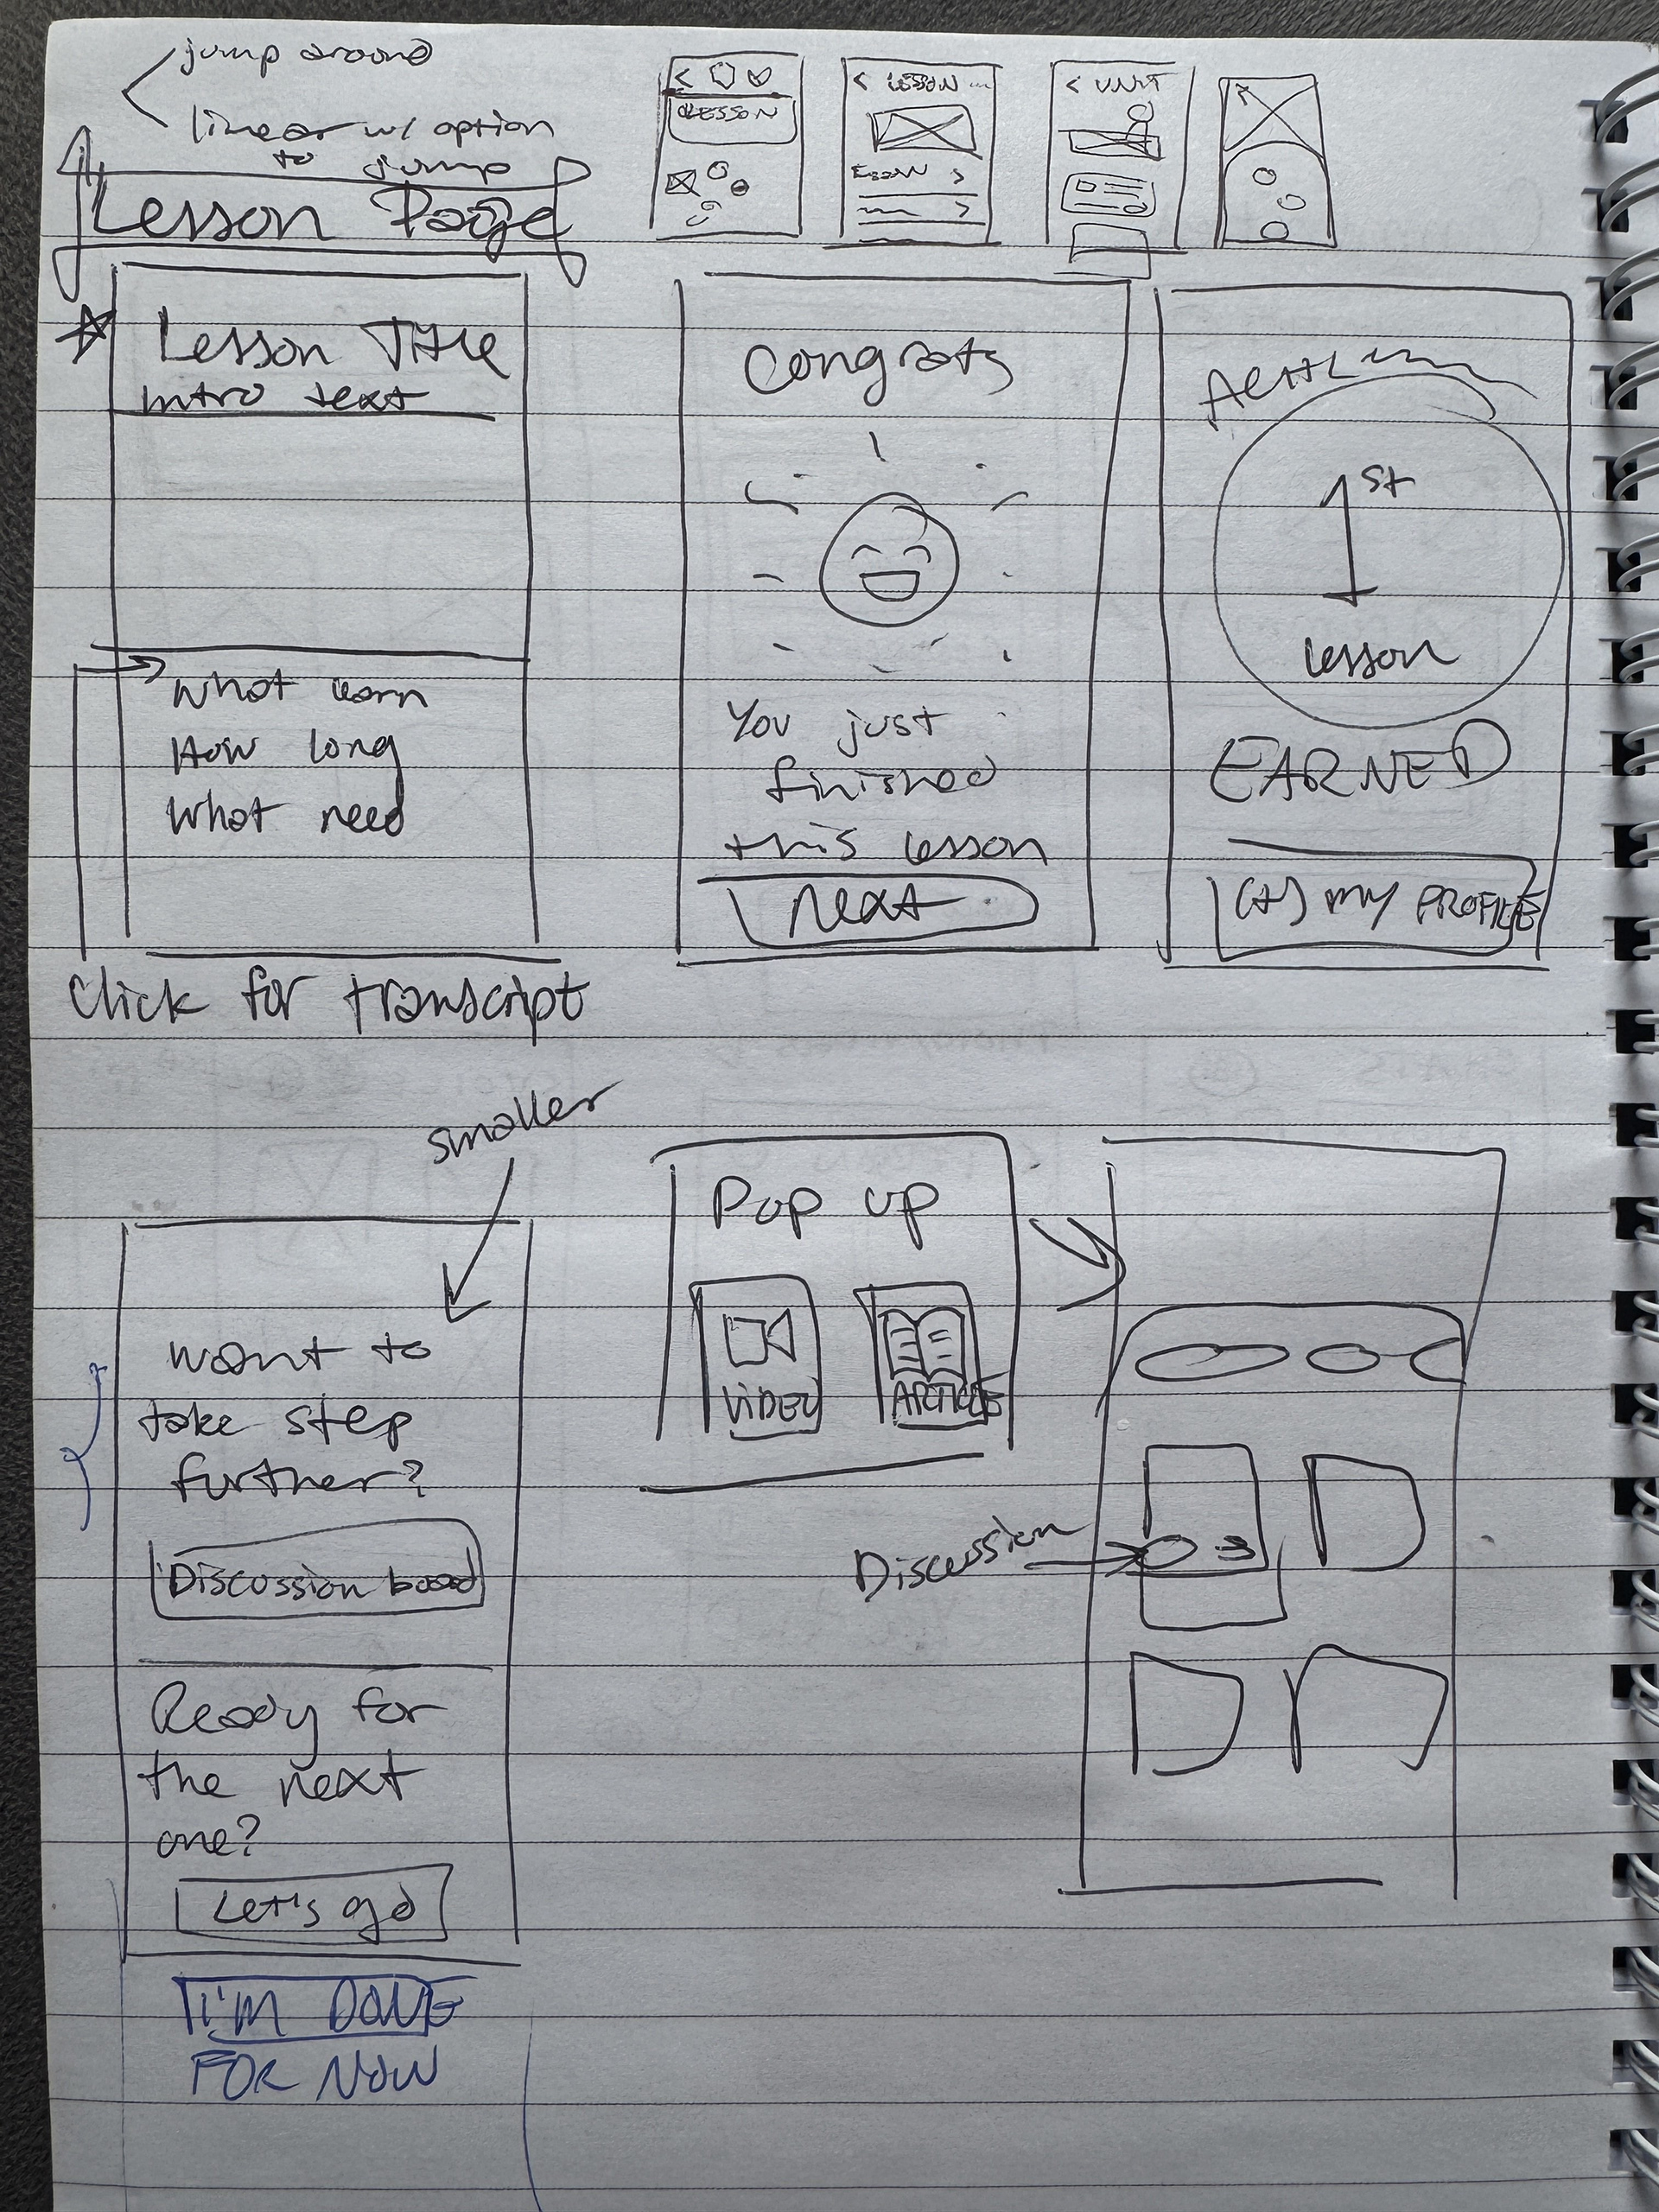 jump around
linear w/ option
to jump
Lesson Page
< LESSON
< LESSON ...
< UNIT
Lesson Title
intro text
What learn
How long
What need
Click for transcript
Congrats
You just
finished
this lesson
Next
1st
lesson
EARNED
(+) my PROFILE
smaller
Want to
take step
further?
Discussion board
Ready for
the next
one?
Let's go
I'M DONE
FOR NOW
Pop up
VIDEO
ARTICLE
Discussion